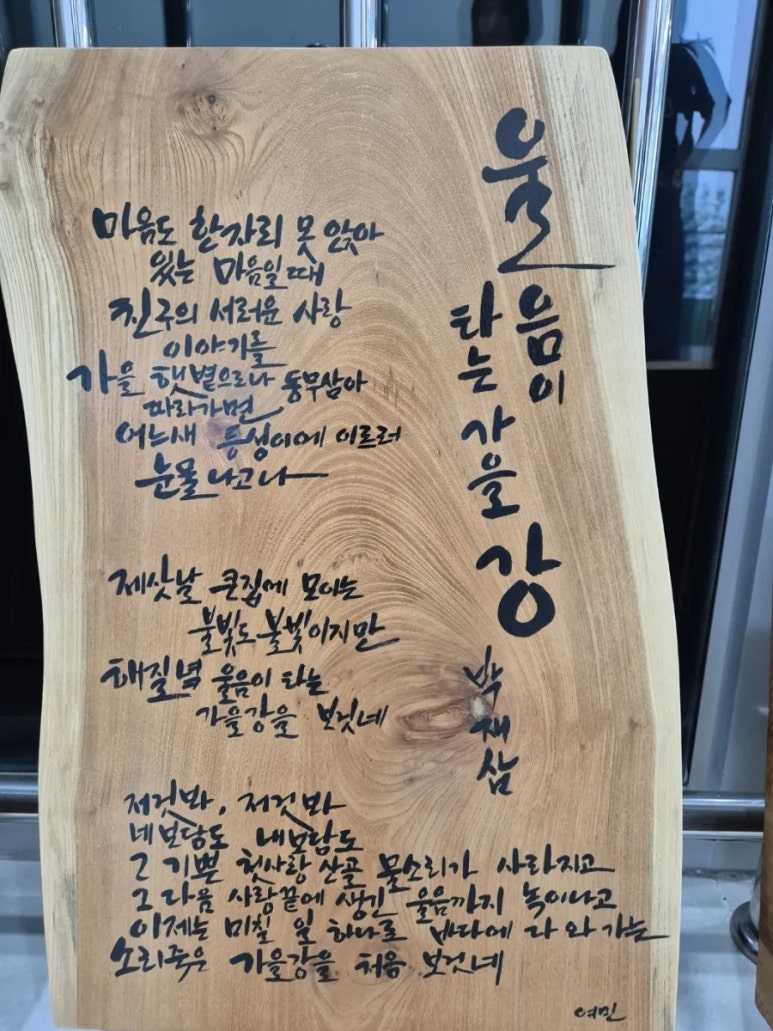 울음이
타는 가을 강
박재삼
마음도 한자리 못 앉아
있는 마음일 때
친구의 서러운 사랑
이야기를
가을 햇볕으로나 동무삼아
따라가면
어느새 등성이에 이르러
눈물나고나
제삿날 큰집에 모이는
불빛도 불빛이지만
해질녘 울음이 타는
가을강을 보것네
저것봐, 저것봐
네보담도 내보담도
그 기쁜 첫사랑 산골 물소리가 사라지고
그 다음 사랑끝에 생긴 울음까지 녹아나고
이제는 미칠 일 하나로 바다에 다 와 가는
소리죽은 가을강을 처음 보것네
여민